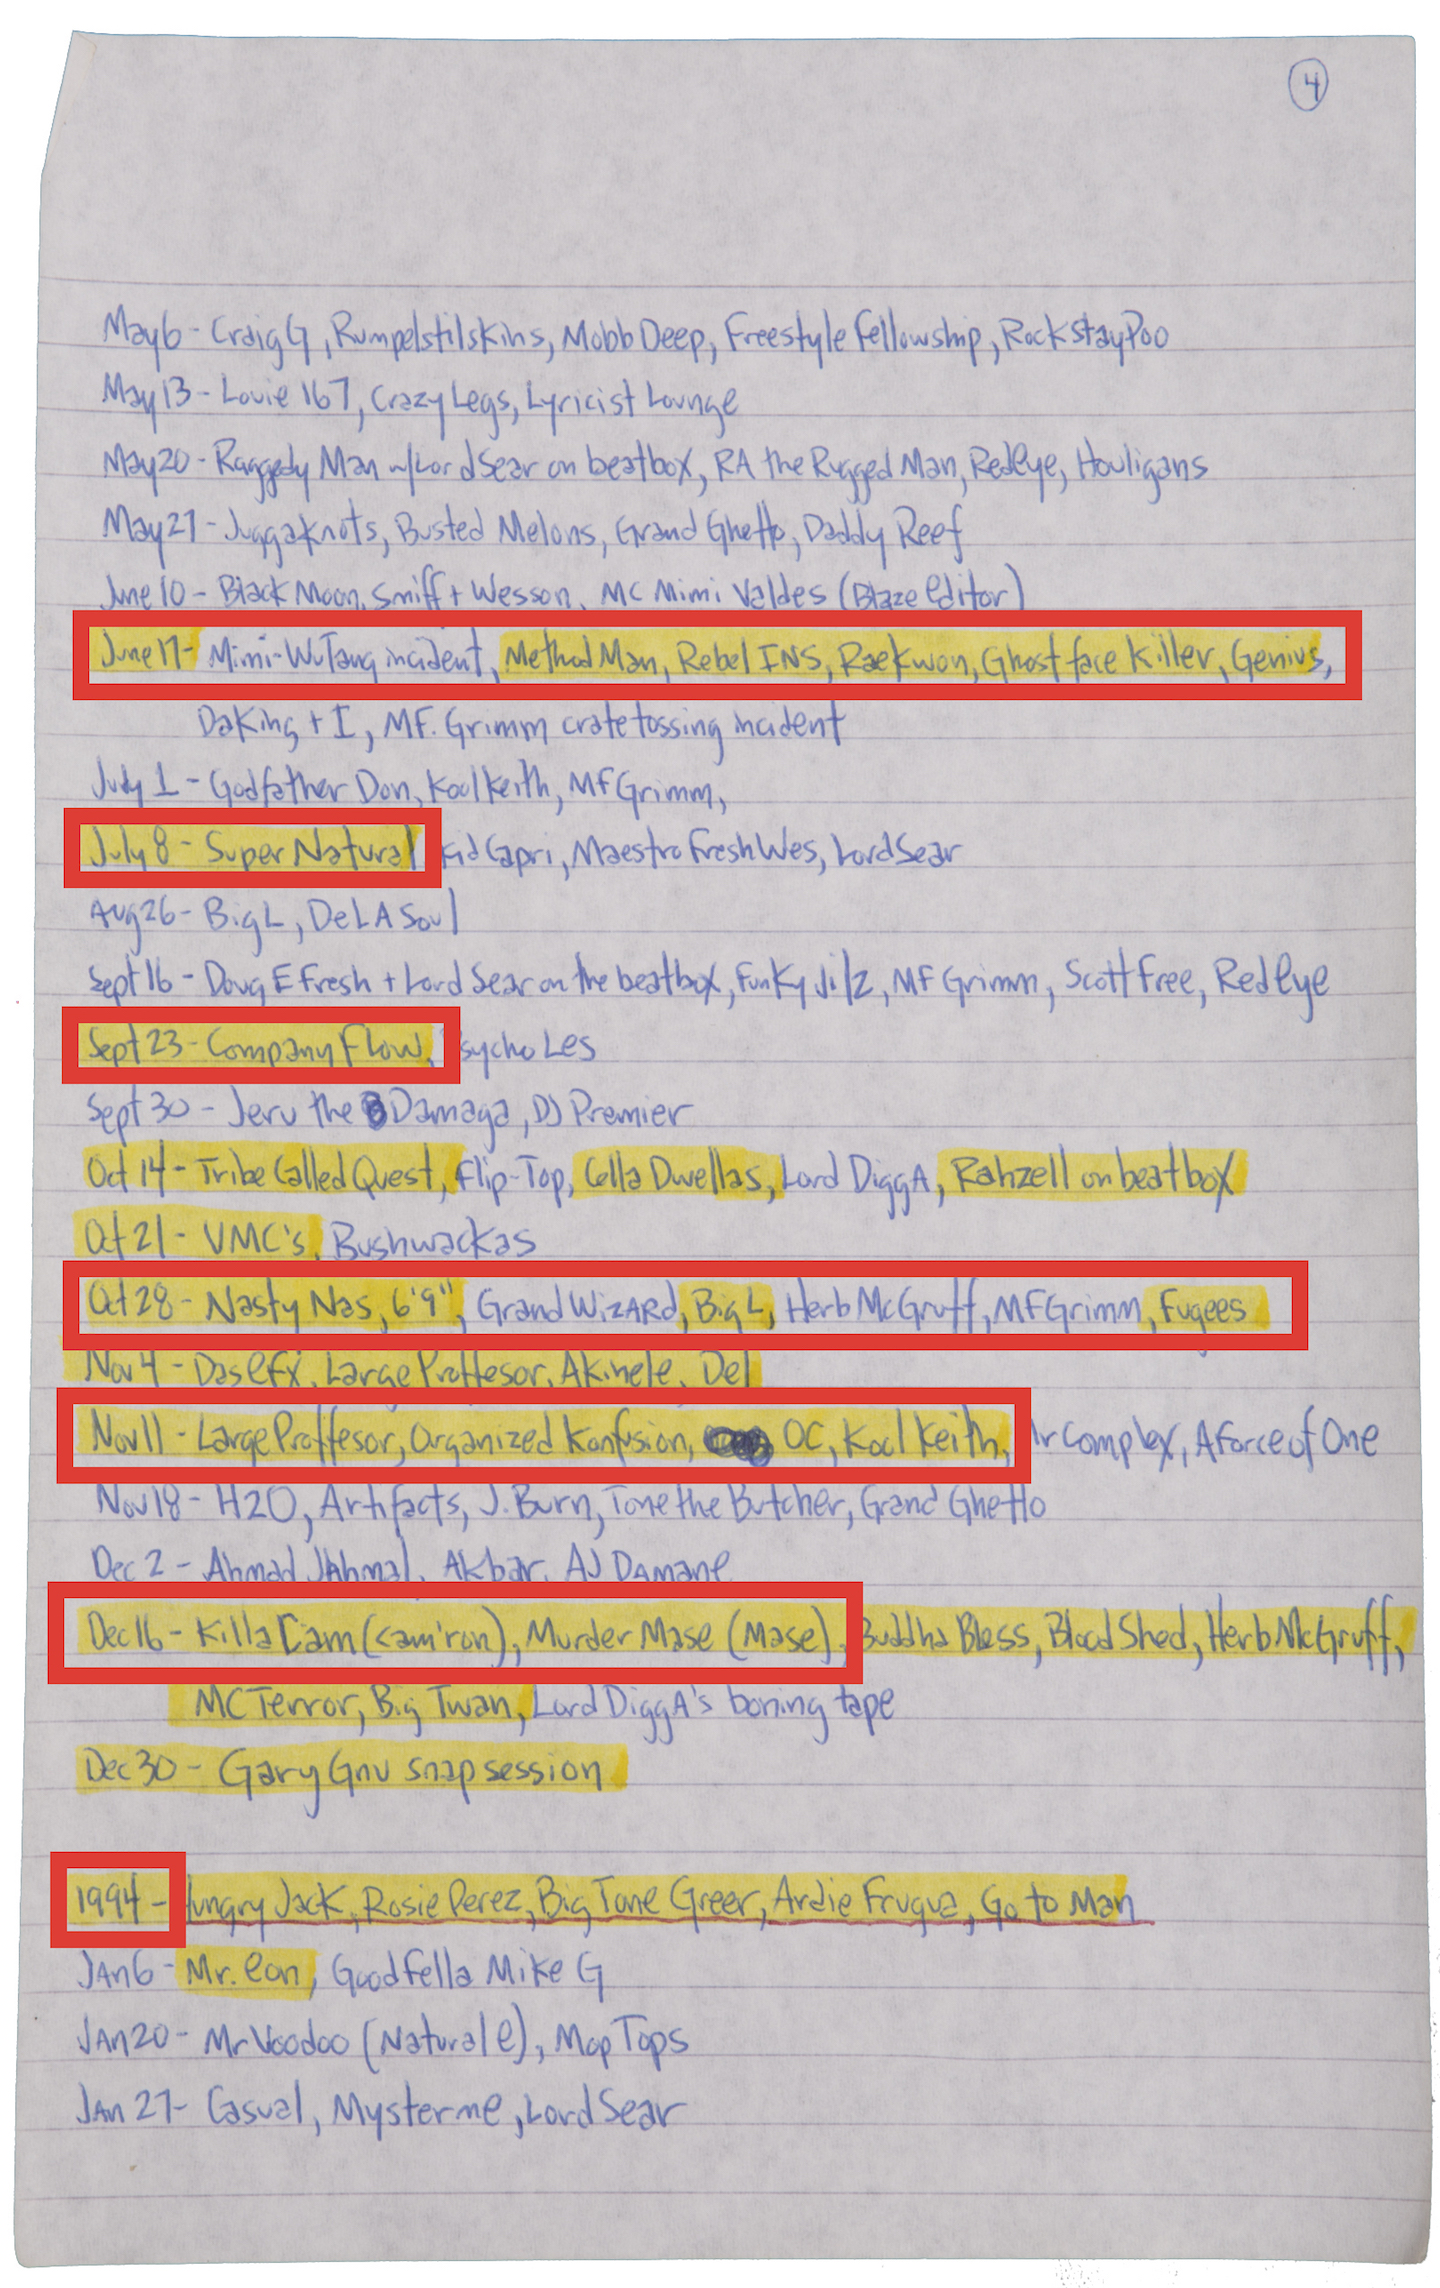 4
May 6 - Craig G, Rumpelstilskins, Mobb Deep, Freestyle Fellowship, Rockstay Poo
May 13 - Louie 167, Crazy Legs, Lyricist Lounge
May 20 - Raggedy Man w/Lord Sear on beatbox, RA the Rugged Man, Redeye, Houligans
May 27 - Juggaknots, Busted Melons, Grand Ghetto, Daddy Reef
June 10 - Black Moon, Smiff + Wesson, MC Mimi Valdes (Blaze editor)
June 17 - Mimi-WuTang incident, Method Man, Rebel INS, Raekwon, Ghostface Killer, Genius,
DaKing + I, MF. Grimm crate tossing incident
July 1 - Godfather Don, Kool Keith, MF Grimm,
July 8 - Super Natural Kid Capri, Maestro Fresh Wes, Lord Sear
Aug 26 - Big L, De LA Soul
Sept 16 - Doug E Fresh + Lord Sear on the beatbox, Funky Jilz, MF Grimm, Scott Free, Redeye
Sept 23 - Company Flow, Psycho Les
Sept 30 - Jeru the Damaga, DJ Premier
Oct 14 - Tribe Called Quest, Flip-Top, Cella Dwellas, Lord DiggA, Rahzell on beatbox
Oct 21 - UMC's, Bushwackas
Oct 28 - Nasty Nas, 6'9", Grand WizARd, Big L, Herb McGruff, MF Grimm, Fugees
Nov 4 - Das eFX, Large Proffesor, Akinele, Del
Nov 11 - Large Proffesor, Organized Konfusion, OC, Kool Keith, Mr Complex, A Force of One
Nov 18 - H2O, Artifacts, J. Burn, Tone the Butcher, Grand Ghetto
Dec 2 - Ahmad JAhmal, Akbar, AJ DAmane
Dec 16 - Killa Cam (Cam'ron), Murder Mase (Mase), Buddha Bless, Blood Shed, Herb McGruff,
MC Terror, Big Twan, Lord DiggA's boning tape
Dec 30 - Gary Gnu snap session
1994 - Hungry Jack, Rosie Perez, Big Tone Greer, Ardie Fuqua, Go to Man
JAn 6 - Mr. eon, Goodfella Mike G
JAn 20 - Mr Voodoo (Natural e), Mop Tops
JAn 27 - Casual, Mysterme, Lord Sear